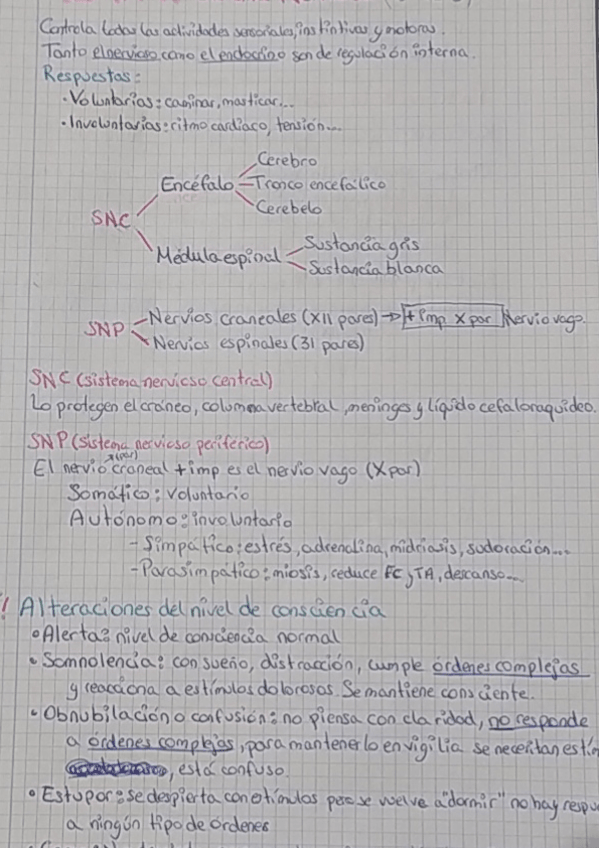 Controla todas las actividades sensoriales, instintivas y motoras.
Tanto el nervioso como el endocrino son de regulación interna.
Respuestas:
· Voluntarias: caminar, masticar...
· Involuntarias: ritmo cardíaco, tensión...
Cerebro
Encéfalo
Tronco encefálico
Cerebelo
SNC
Médula espinal
Sustancia gris
Sustancia blanca
SNP
Nervios craneales (XII pares) → + imp X par Nervio vago.
Nervios espinales (31 pares)
SNC (sistema nervioso central)
Lo protegen el cráneo, columna vertebral, meninges y líquido cefaloraquídeo.
SNP (sistema nervioso periférico)
El nervio craneal + imp es el nervio vago (X par)
Somático: voluntario
Autónomo: involuntario
- Simpático: estrés, adrenalina, midriasis, sudoración...
- Parasimpático: miosis, reduce FC y TA, descanso...
! Alteraciones del nivel de consciencia
• Alerta: nivel de consciencia normal
• Somnolencia: con sueño, distracción, cumple órdenes complejas
y reacciona a estímulos dolorosos. Se mantiene consciente.
• Obnubilación o confusión: no piensa con claridad, no responde
a órdenes complejas, para mantenerlo en vigilia se necesitan
, está confuso.
• Estupor: se despierta con estímulos pero se vuelve a "dormir" no hay
a ningún tipo de órdenes